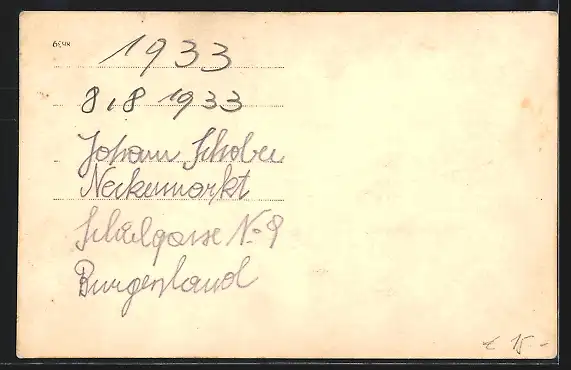 6648
1933
8.8 1933
Johann Schober
Neckenmarkt
Schulgasse N-8
Burgenland
€ 15.-